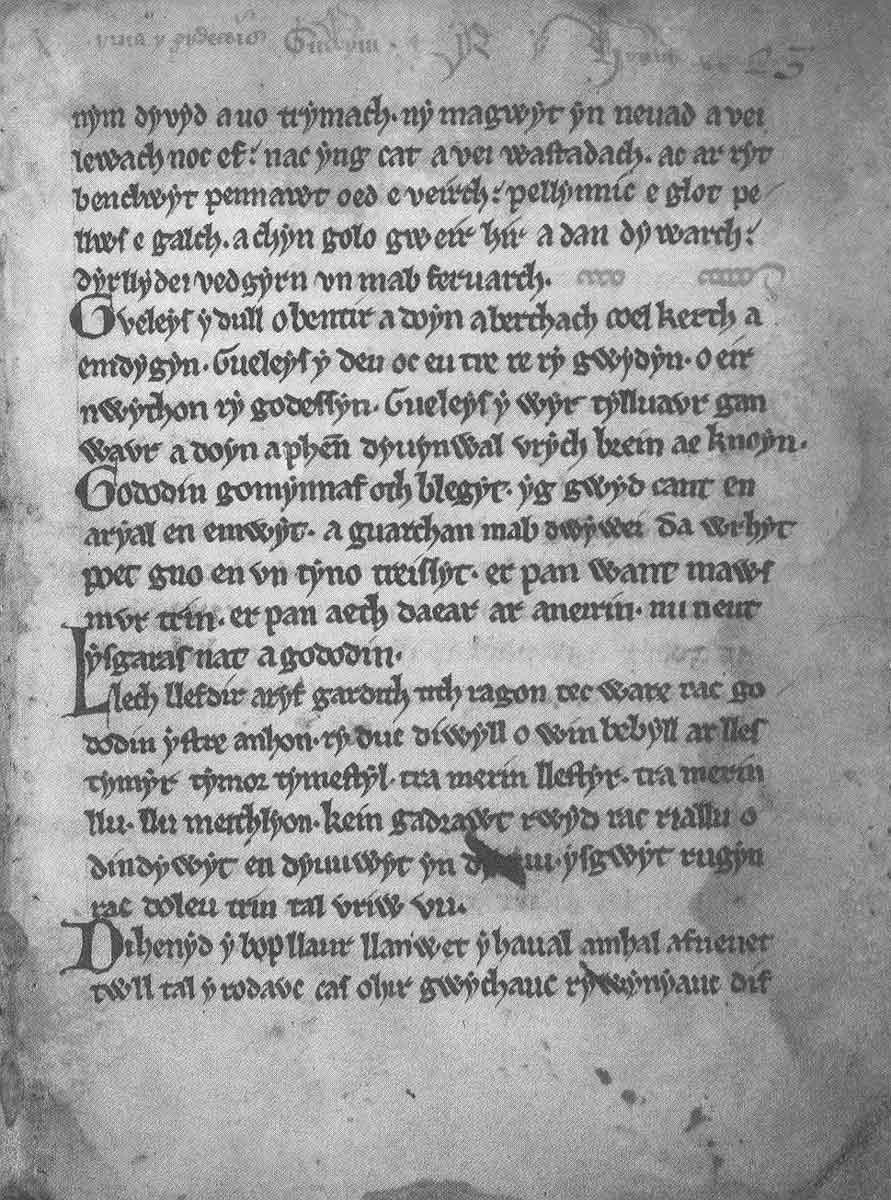 nẏm dyvẏd a uo trẏmach. nẏ magwẏt ẏn neuad a vei
lewach noc ef: nac ẏng cat a vei wastadach. ac ar rẏt
benclwẏt pennawt oed e veirch: pellẏnnic e glot pe
llws e galch. a chẏn golo gweir hir a dan dy warch:
dẏrllydei vedgẏrn vn mab feruarch.
Gveleys ẏ dull o bentir a doẏn aberthach coel kerth a
emdygẏn. Gueleẏs ẏ deu oc eu tre re rẏ gwẏdẏn. o eir
nwẏthon rẏ godessẏn. Gueleẏs ẏ wẏr tẏlluavr gan
wavr a doẏn a phen̄ dẏuẏnwal vrẏch brein ae knoẏn.
Gododin gomẏnnaf oth blegẏt. ẏg gwẏd cant en
arẏal en emwẏt. a guarchan mab dwẏwei da wrhẏt
poet gno en vn tẏno treissẏt. er pan want maws
mvr trin. er pan aeth daear ar aneirin. nu neut
ẏsgaras nat a gododin.
Llech llefdir arẏf gardith tith ragon tec ware rac go
dodin ẏstre anhon. rẏ duc diwyll o win bebyll ar lles
tẏmẏr tẏmor tẏmestẏl. tra merin llestẏr. tra merin
llu. llu meithlẏon. kein gadrawt rwẏd rac riallu o
dindẏwẏt en dẏuuwẏt ẏn ẏsgwẏt rugẏn
rac doleu trin tal vriw vu.
Dihenẏd ẏ bop llaur llanwet ẏ haual amhal afneuet
twll tal ẏ rodavc cas ohir gwẏchauc rẏwẏnẏauc dif